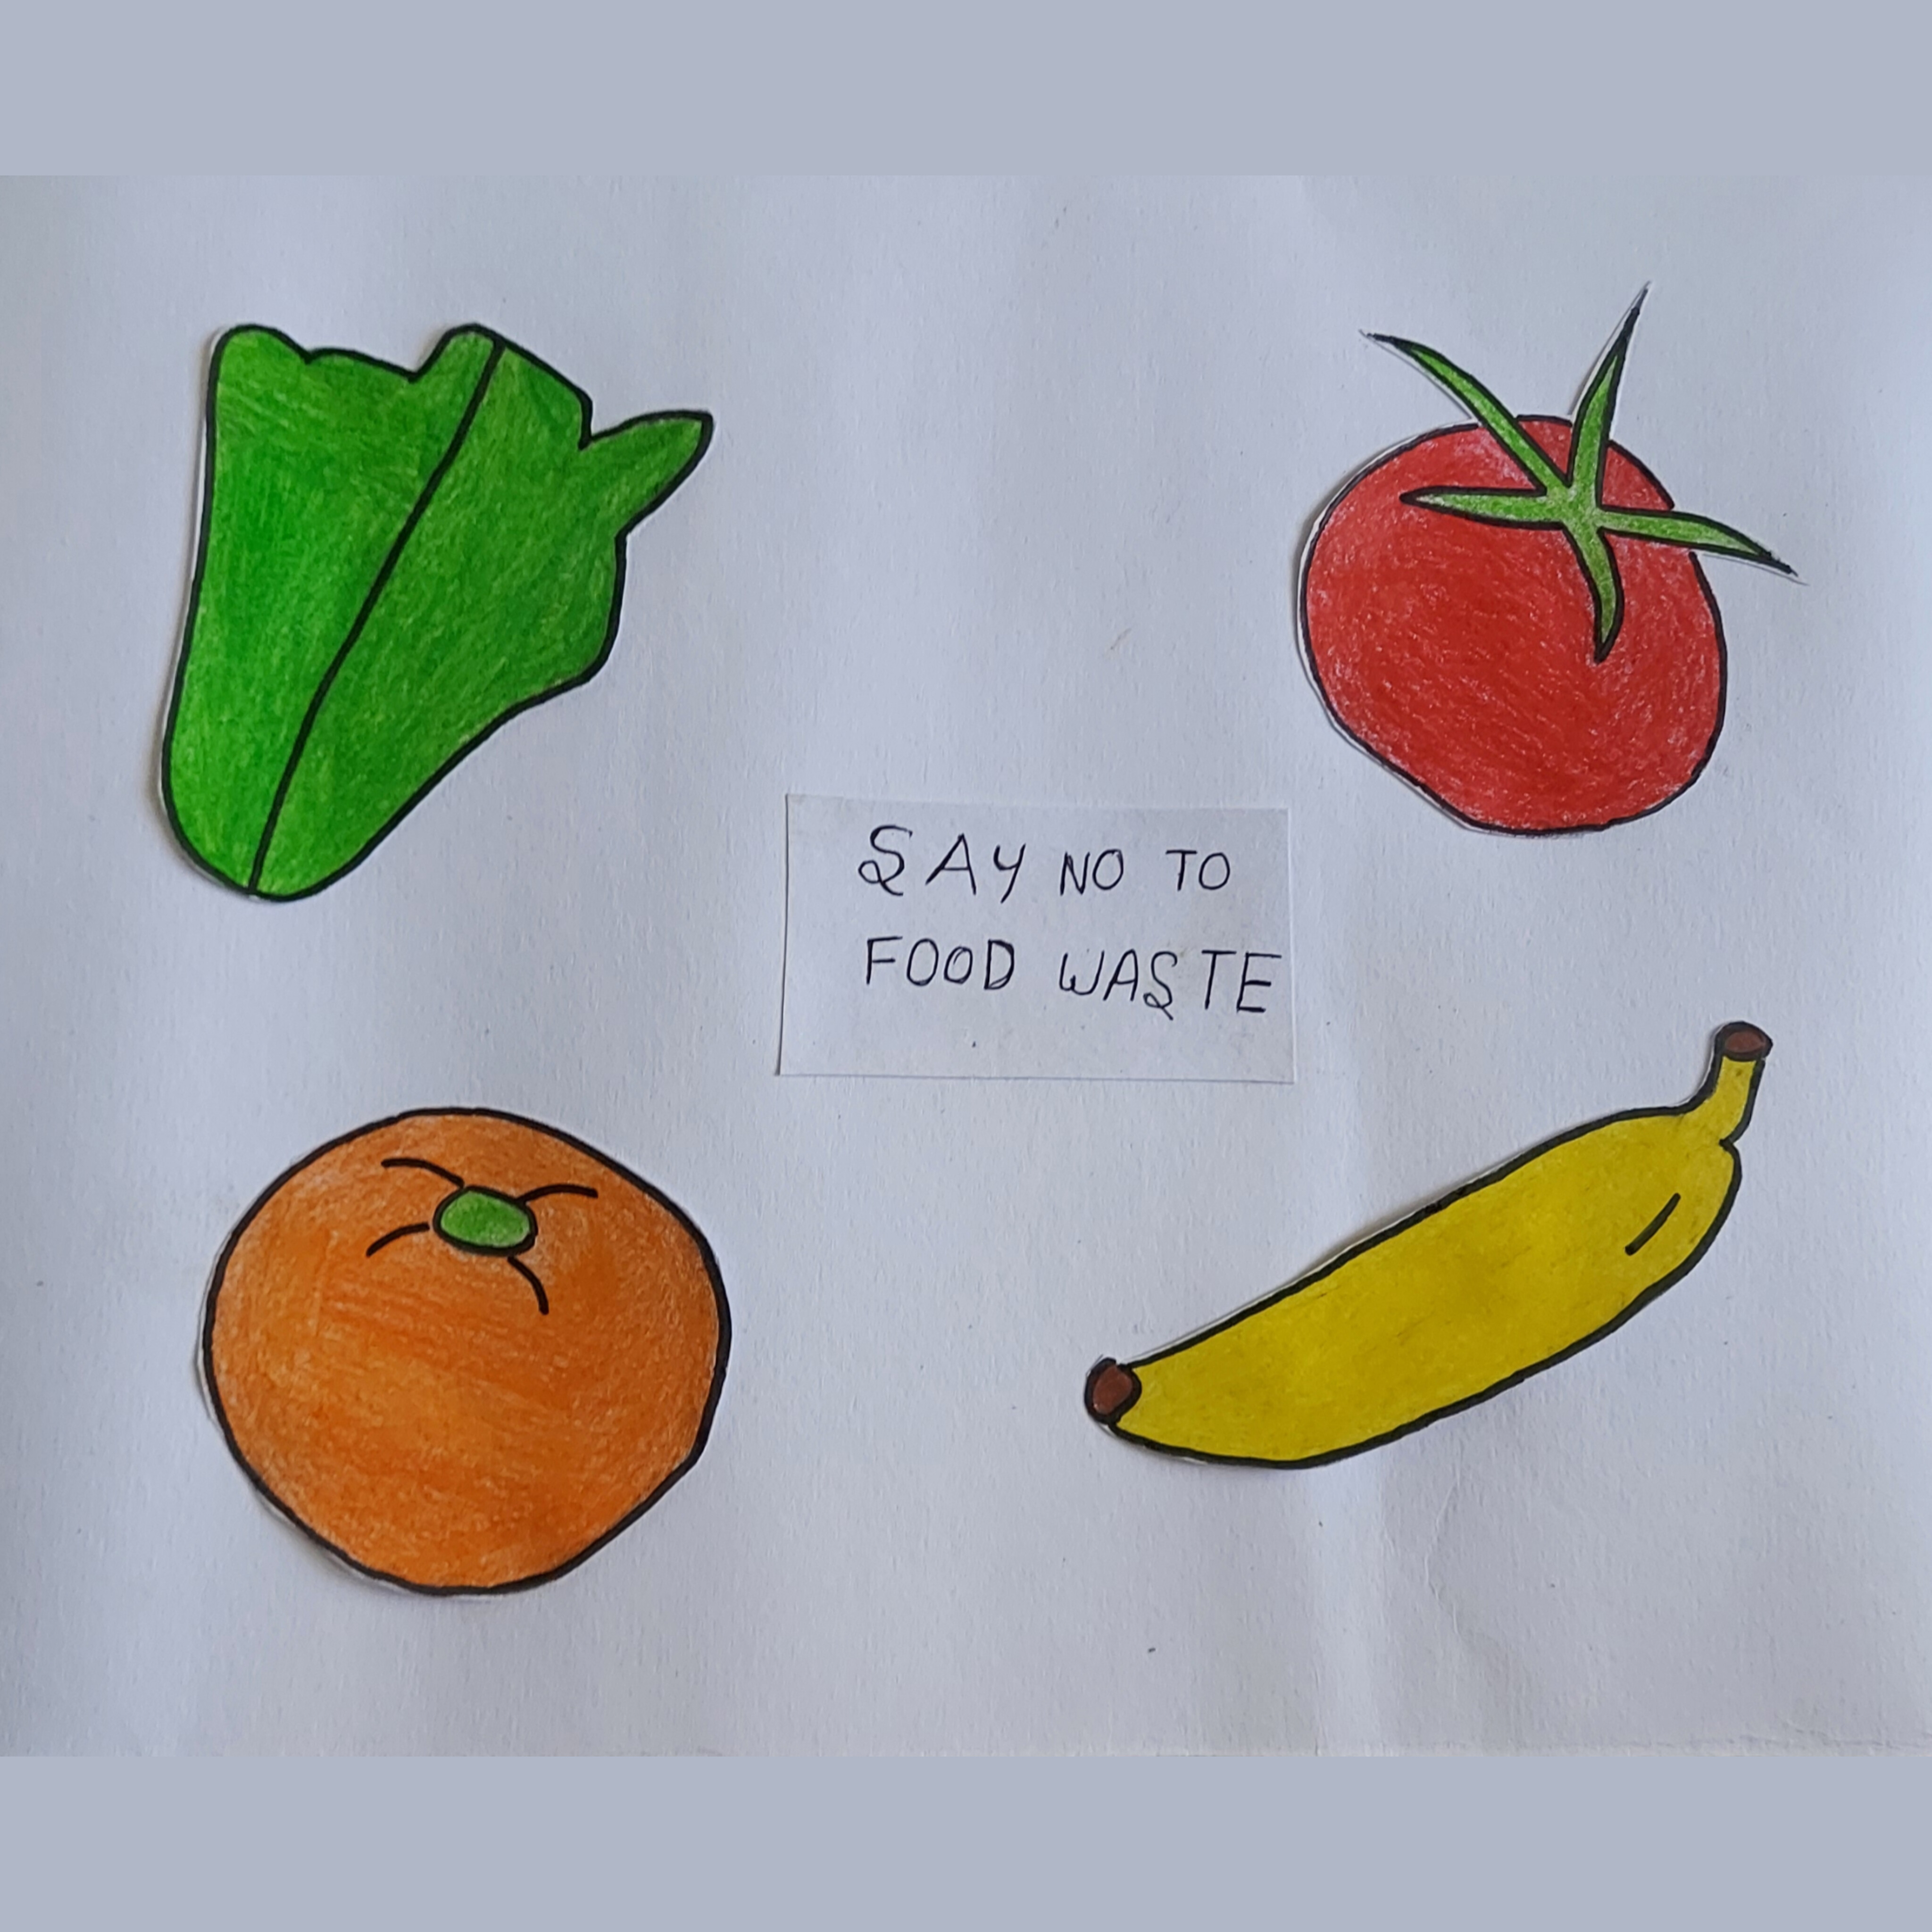 SAY NO TO
FOOD WASTE